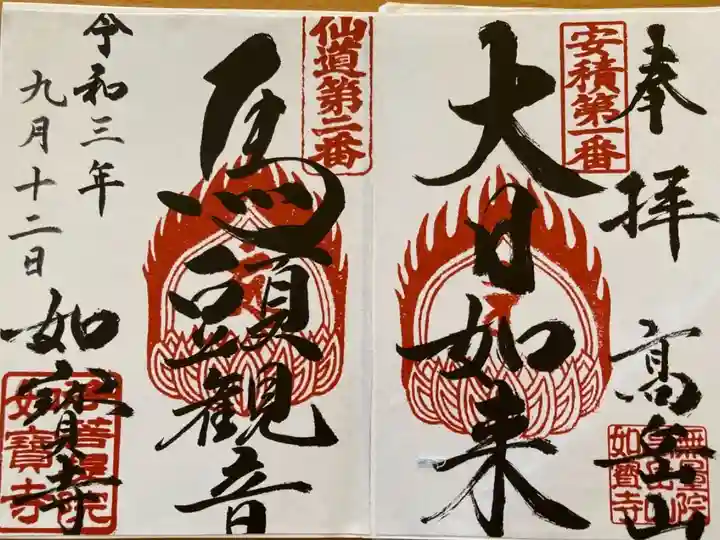 奉拝
安積第一番
大日如来
高岳山
無量院
如寶寺
仙道第二番
馬頭観音
令和三年
九月十二日
如寶寺
菩提院
如寶寺